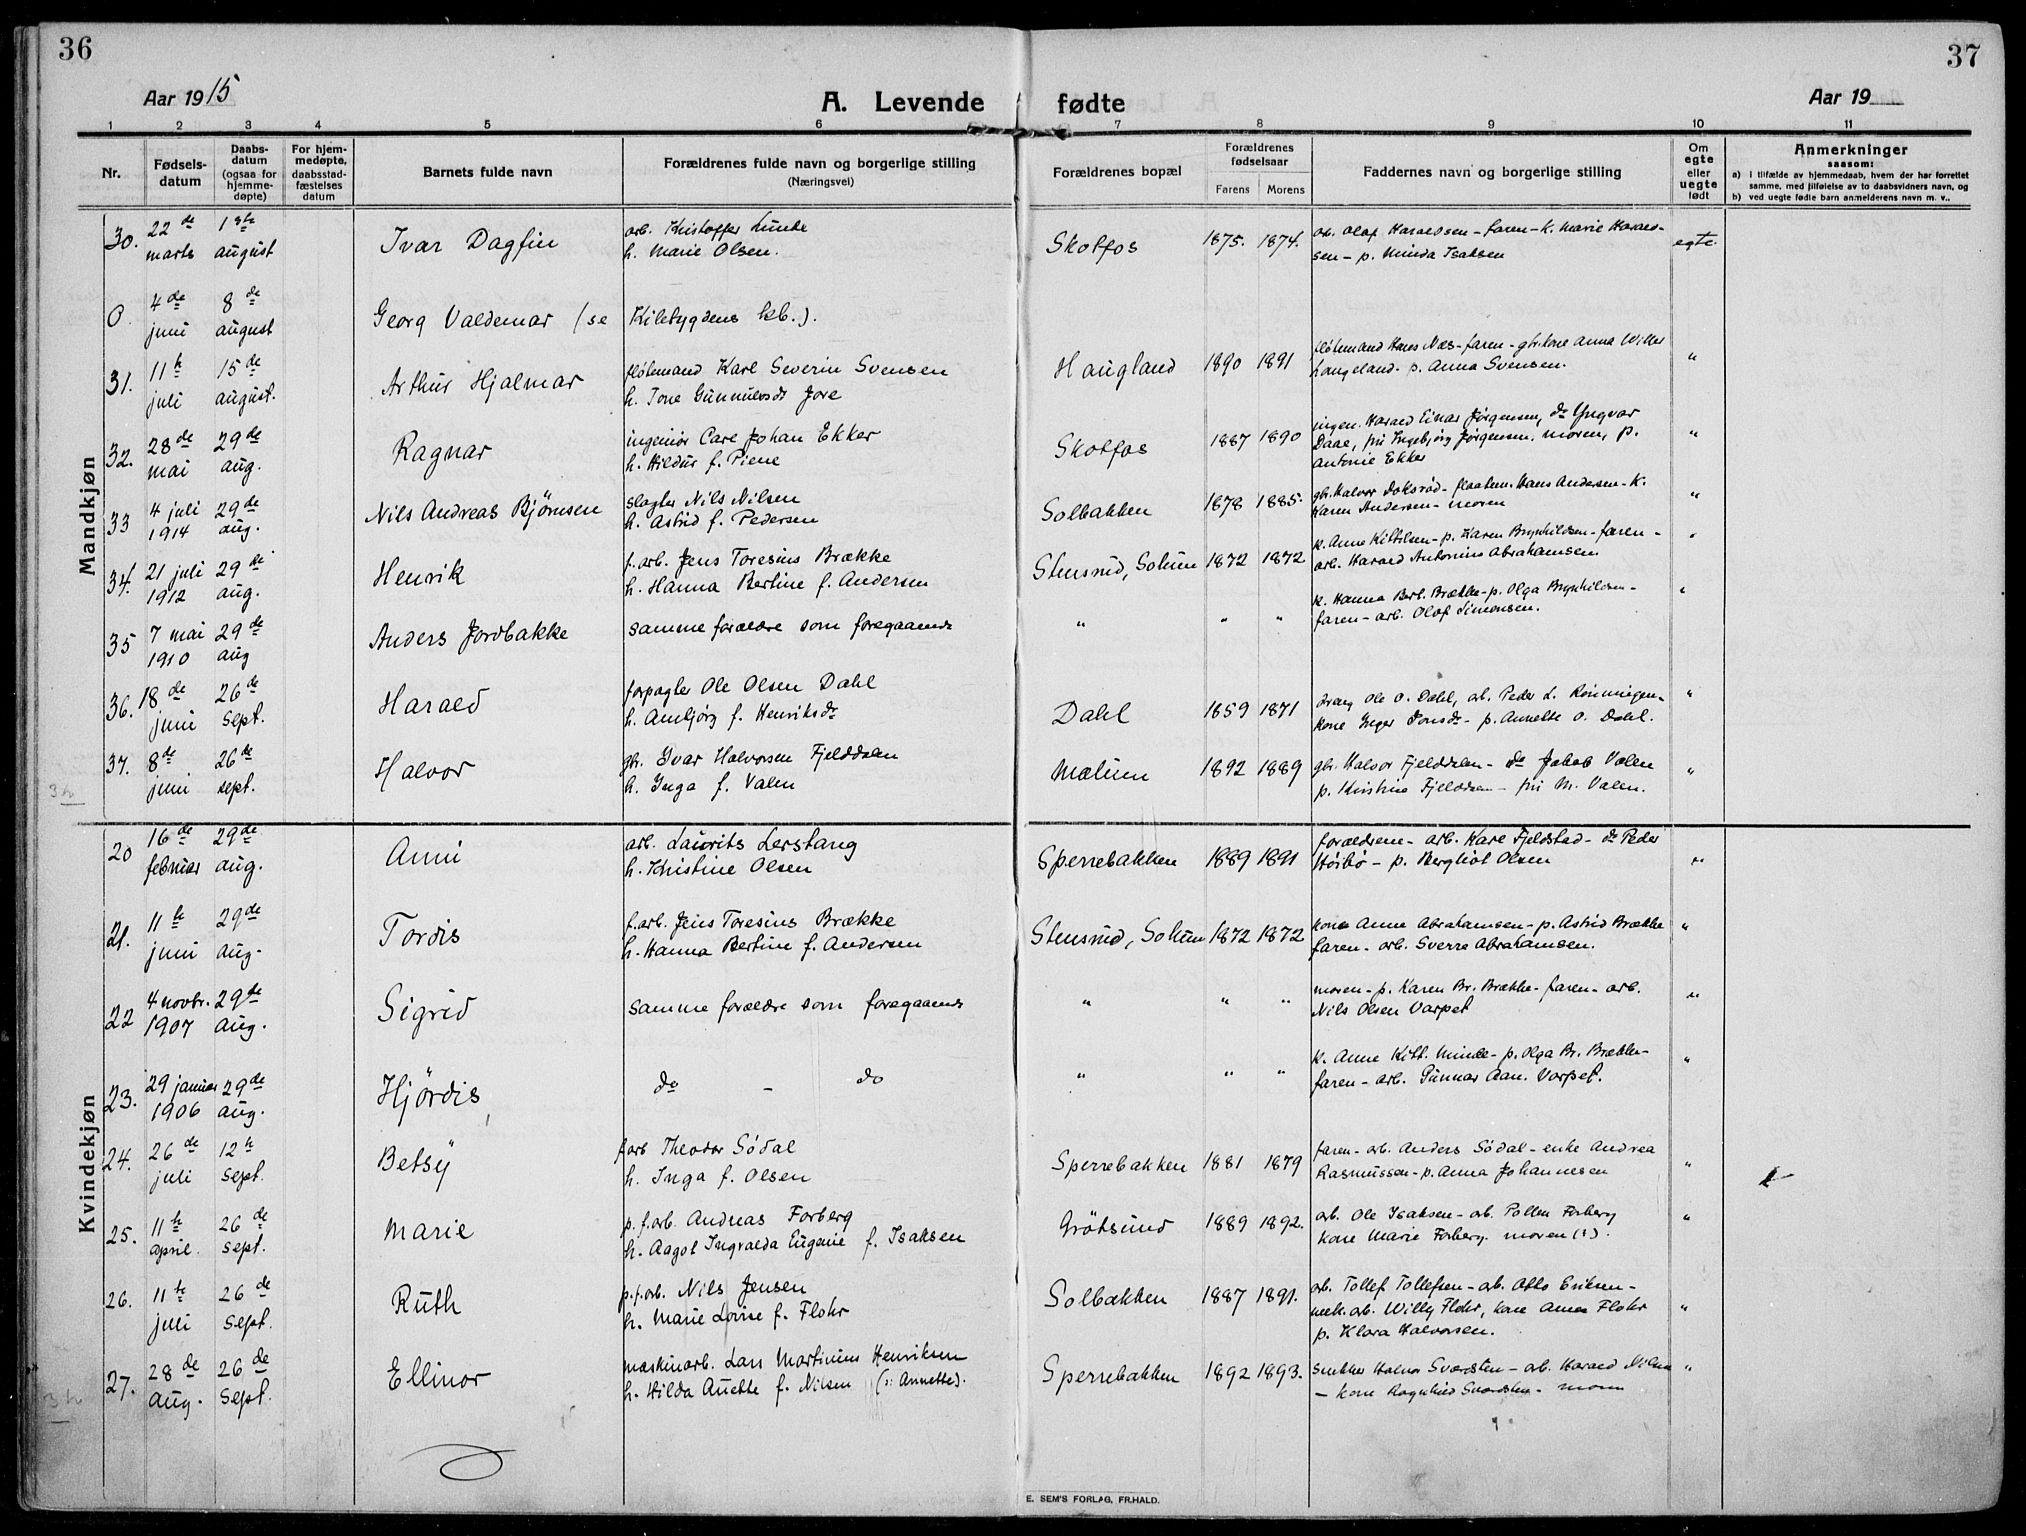 36
37
Aar 1915
A. Levende fødte
Aar 19
1 2 3 4 5 6 7 8 9 10 11
Nr.
Fødsels-
datum
Daabs-
datum
(ogsaa for
hjemme-
døpte)
For hjem-
medøpte,
daabsstad-
fæstelses
datum
Barnets fulde navn
Forældrenes fulde navn og borgerlige stilling
(Næringsvei)
Forældrenes bopæl
Forældrenes
fødselsaar
Farens Morens
Faddernes navn og borgerlige stilling
Om
egte
eller
uegte
født
Anmerkninger
saasom:
a) i tilfælde av hjemmedaab, hvem der har forrettet
samme, med tilføielse av to daabsvidners navn, og
b) ved uegte fødte barn anmelderens navn m. v..
Mandkjøn
30. 22de marts 1ste august Ivar Dagfin arb. Kristoffer Lunde
h. Marie Olsen. Skotfos 1875. 1874. arb. Olaf Haraldsen – faren – k. Marie Harald-
sen – p. Minda Isaksen egte.
0. 4de juni 8de august Georg Valdemar (se Kilebygdens kb.).
31. 11te juli 15de august. Arthur Hjalmar fløtemand Karl Severin Svensen
h. Tone Gunnulvsdr Jore Haugland 1890 1891 fløtemand Hans Næs – faren – gbr.kone Anna
Langeland – p. Anna Svensen. "
32. 28de mai 29de aug. Ragnar ingeniør Carl Johan Ekker
h. Hildur f. Piene Skotfos 1887 1890 ingen. Harald Einar Jørgensen, do Yngvar
Daae, fru Ingebjørg Jørgensen, moren, p.
Antonie Ekker "
33 4 juli 1914 29de aug. Nils Andreas Bjørnsen slagter Nils Nilsen
h. Astrid f. Pedersen Solbakken 1878 1885. gbr. Halvor Doksrød – fløtem. Hans Andersen – k.
Karen Andersen – moren "
34. 21 juli 1912 29de aug. Henrik f.arb. Jens Toresius Brække
h. Hanna Bertine f. Andersen Stensrud, Solum 1872 1872 k. Anne Kittilsen – p. Karen Brynhildsen – faren –
arb. Harald Antonius Abrahamsen. "
35 7 mai 1910 29de aug Anders Jordbakke samme forældre som foregaaende " " " k. Hanna Bert. Brække – p. Olga Brynhildsen –
faren – arb. Olaf Simonsen. "
36. 18de juni 26de sept. Harald forpagter Ole Olsen Dahl
h. Ambjørg f. Henriksdr Dahl 1859 1871 dreng Ole O. Dahl, arb. Peder L. Rønningen –
kone Inger Tonsdr – p. Annette O. Dahl. "
37. 8de juni 26de sept. Halvor gbr. Ivar Halvorsen Fjelddalen
h. Inga f. Valen Mælum 1892 1889 gbr. Halvor Fjelddalen – do Jakob Valen
p. Kristine Fjelddalen – fru M. Valen. "
Kvindekjøn
20 16de februar 29de aug. Anni arb. Laurits Lerstang
h. Kristine Olsen Sperrebakken 1889 1891 forældrene – arb. Karl Fjeldstad – do Peder
Hørbø – p. Bergliot Olsen "
21. 11te juni 29de aug. Tordis f.arb. Jens Toresius Brække
h. Hanna Bertine f. Andersen Stensrud, Solum 1872 1872 kone Anne Abrahamsen – p. Astrid Brække
faren – arb. Sverre Abrahamsen. "
22 4 novbr. 1907 29de aug. Sigrid samme forældre som foregaaende " " " moren – p. Karen Br. Brække – faren – arb.
Nils Olsen Varpet "
23. 29 januar 1906 29de aug. Hjørdis do – do " " " k. Anne Kitt. Minde – p. Olga Br. Brække –
faren – arb. Gunnar Aan. Varpet. "
24. 26de juli 12te sept. Betsy farb Theodor Sødal
h. Inga f. Olsen Sperrebakken 1881 1879 faren – arb. Anders Sødal – enke Andrea
Rasmussen – p. Anna Johannesen "
25. 11te april. 26de sept. Marie p.f.arb. Andreas Forberg
h. Aagot Ingvalda Eugenie f. Isaksen Grøtsund 1889 1892. arb. Ole Isaksen – arb. Forberg
kone Marie Forberg. moren (:). "
26. 11te juli 26de sept. Ruth p.f.arb. Nils Jensen
h. Marie Lovise f. Flohr Solbakken 1887 1891. arb. Tollef Tollefsen – arb. Otto Eriksen –
mek. arb. Willy Flohr, kone Anna Flohr
p. Klara Halvorsen. "
27. 28de aug. 26de sept. Ellinor maskinarb. Lars Martinius Henriksen
h. Hilda Anette f. Nilsen (: Annette). Sperrebakken 1892 1893. snekker Halvor Sværdsten – arb. Harald Nilsen
– kone Ragnhild Sværdsten – moren "
E. SEM'S FORLAG, FR.HALD.